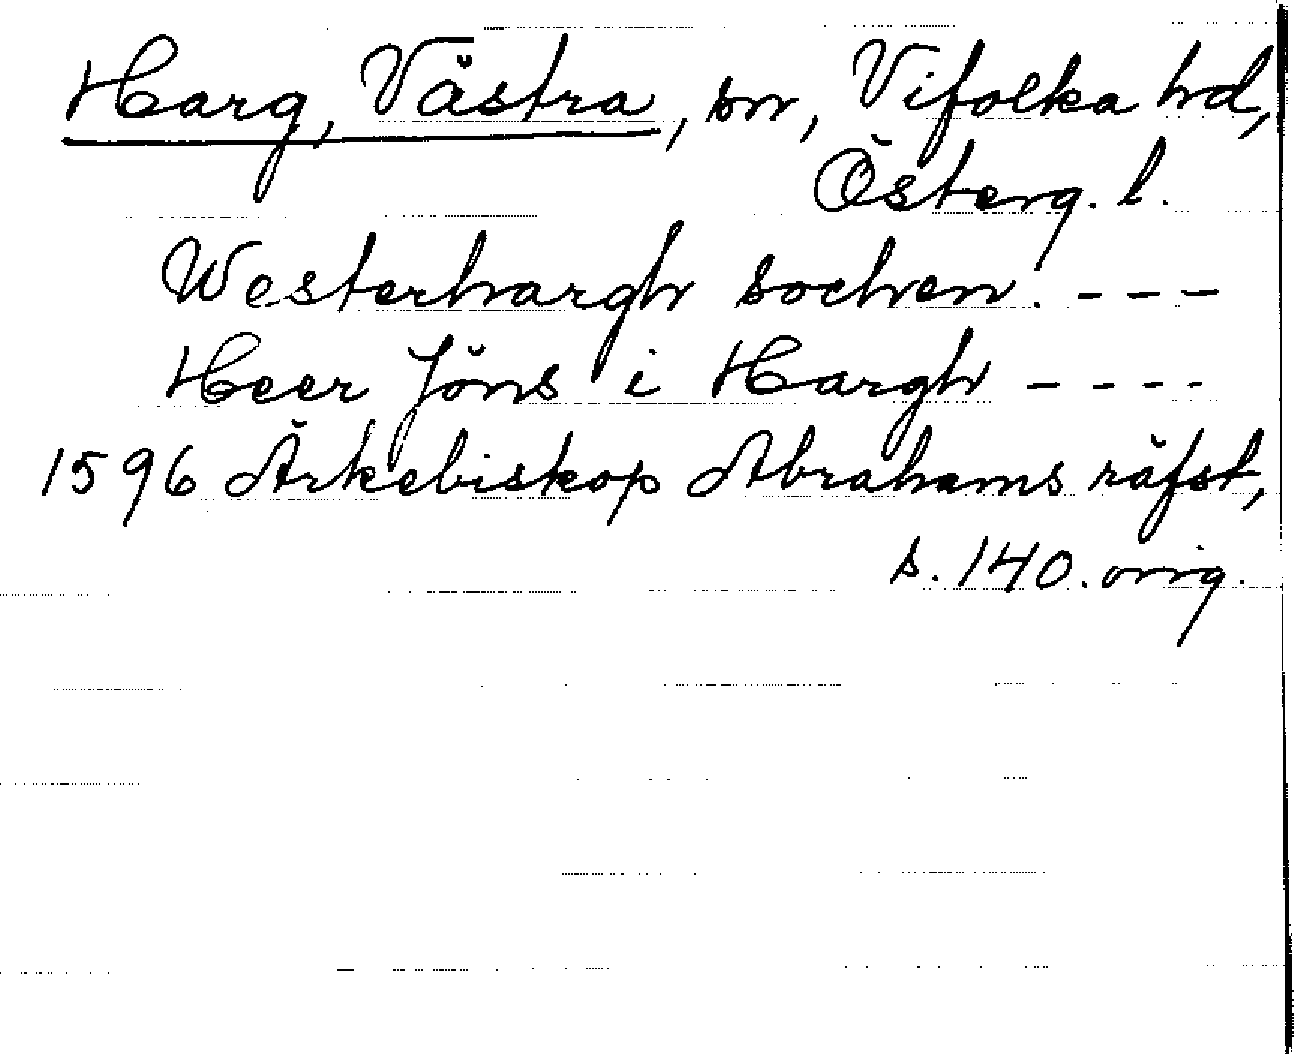 Harg, Västra, sn, Vifolka hd,
Österg. l.
Westerhargh sochen. - - -
Heer Jöns i Hargh - - - -
1596 Ärkebiskop Abrahams räfst,
s. 140. orig.